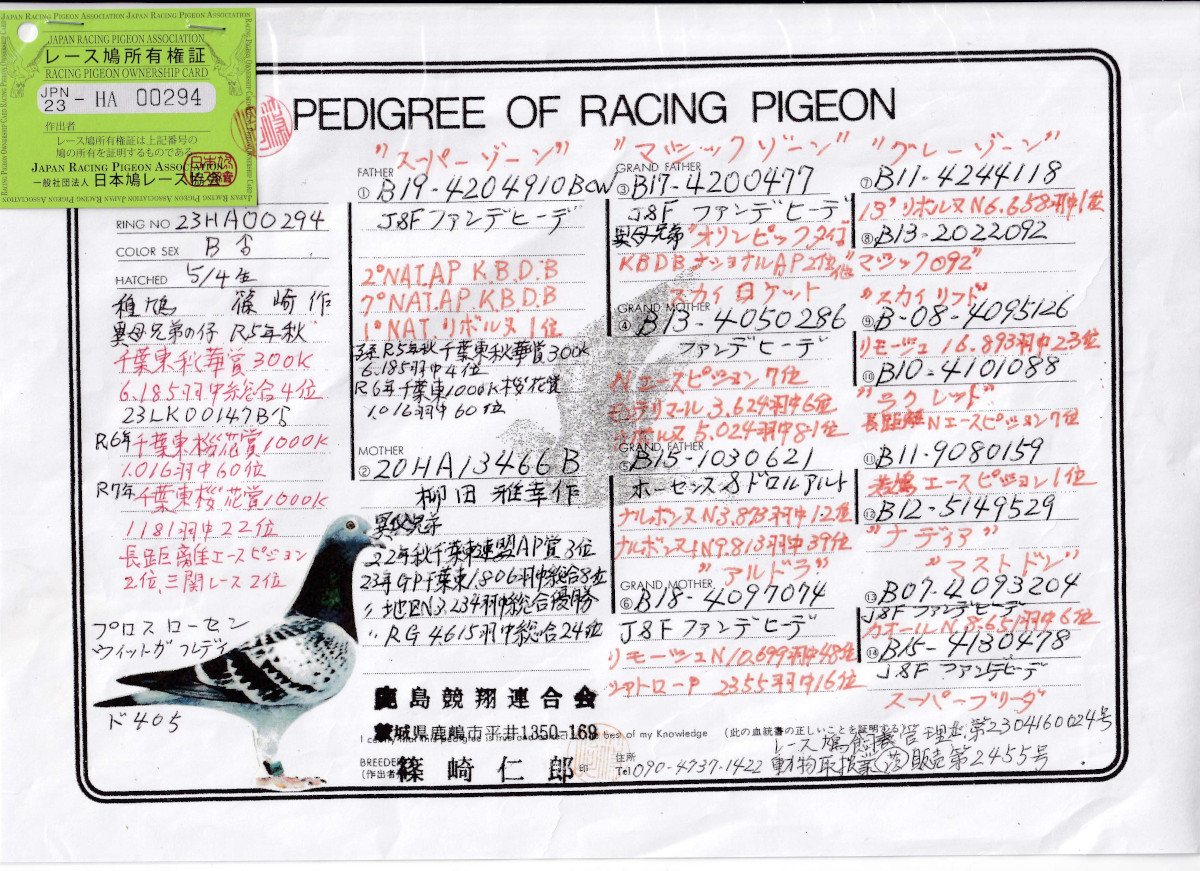 JAPAN RACING PIGEON ASSOCIATION JAPAN RACING PIGEON ASSOCIATION
JAPAN RACING PIGEON ASSOCIATION
レース鳩所有権証
RACING PIGEON OWNERSHIP CARD
JPN 23 - HA 00294
作出者
レース鳩所有権証は上記番号の
鳩の所有を証明するものである
JAPAN RACING PIGEON ASSOCIATION
一般社団法人 日本鳩レース協会
PEDIGREE OF RACING PIGEON
RING NO 23HA00294
COLOR SEX B ♂
HATCHED 5/4生
種鳩 篠崎作
異母兄弟の仔 R5年秋
千葉東秋華賞300K
6.185羽中総合4位
23LK00147B♂
R6年千葉東桜花賞1000K
1.016羽中60位
R7年千葉東桜花賞1000K
1181羽中22位
長距離エースピジョン
2位、三関レース2位
プロスローセン
ウィットガフレディ
ド405
"スーパーゾーン"
FATHER
① B19-4204910BCW
J&F ファンデヒーデ
2°NAT.AP K.B.D.B
7°NAT.AP.K.B.D.B
1°NAT.リボルヌ1位
R5年秋千葉東秋華賞300K
6.185羽中4位
R6年千葉東1000K桜花賞
1.016羽中60位
MOTHER
② 20HA13466B
柳田雅幸作
異父兄弟
22年秋千葉東連盟AP賞3位
23年GP千葉東1.806羽中総合8位
〃地区N3.234羽中総合優勝
〃RG4615羽中総合24位
"マジックゾーン"
GRAND FATHER
③ B17-4200477
J&F ファンデヒーデ
異母兄弟"オリンピックタイゴ"
KBDBナショナルAP2位
スカイロケット
GRAND MOTHER
④ B13-4050286
ファンデヒーデ
Nエースピジョン7位
モンテリマール3.624羽中6位
リボルヌ5.024羽中81位
GRAND FATHER
⑤ B15-1030621
ホーセンス&ドロルアルト
ナルボンヌN3.873羽中12位
ナルボンヌIN9.813羽中39位
"アルドラ"
GRAND MOTHER
⑥ B18-4097074
J&F ファンデヒーデ
リモージュN10.699羽中48位
シャトロー 2355羽中16位
"グレーゾーン"
⑦ B11-4244118
13'リボルヌN6.658羽中1位
⑧ B13-2022092
マジック092"
"スカイリフト"
⑨ B-08-4095126
リモージュ16.893羽中23位
⑩ B10-4101088
"ラクレッド"
長距離Nエースピジョン7位
⑪ B11-9080159
若鳩エースピジョン1位
⑫ B12-5149529
"ナディア"
"マストドン"
⑬ B07-4093204
J&F ファンデヒーデ
カオールN8.651羽中6位
⑭ B15-4130478
J&F ファンデヒーデ
スーパーブリーダ
鹿島競翔連合会
茨城県鹿嶋市平井1350-169
best of my Knowledge (此の血統書の正しいことを証明する)
レース鳩飼養管理士第2304160024号
BREEDER (作出者) 篠崎仁郎 印
住所
Tel 090-4737-1422 動物取扱業(茨)販売第2455号